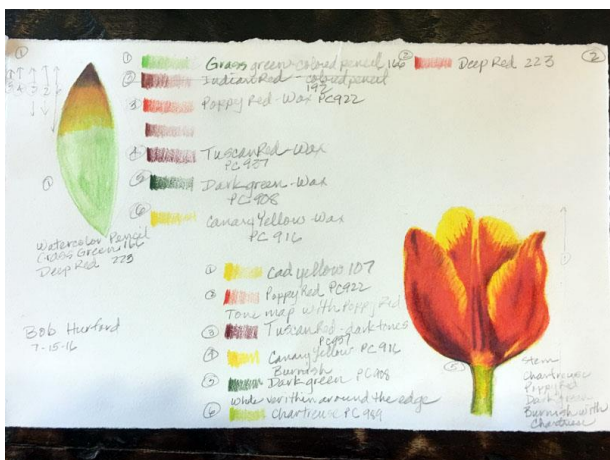 ①
① Grass green-colored pencil 166
② Indian Red - colored pencil
192
③ Poppy Red-Wax PC922
④ Tuscan Red-Wax
PC 937
⑤ Dark green-Wax
PC 908
⑥ Canary Yellow-Wax
PC 916
② Deep Red 223
②
①
Watercolor Pencil
Grass Green 166
Deep Red 223
Bob Hurford
7-15-16
① Cad yellow 107
② Poppy Red PC922
Tone map with Poppy Red
③ Tuscan Red-dark tones
PC937
④ Canary Yellow PC916
Burnish
⑤ Dark green PC908
verithin around the edge
⑥ Chartreuse PC 989
⑥
Stem
Chartreuse
Poppy Red
Dark green
Burnish with
Chartreuse